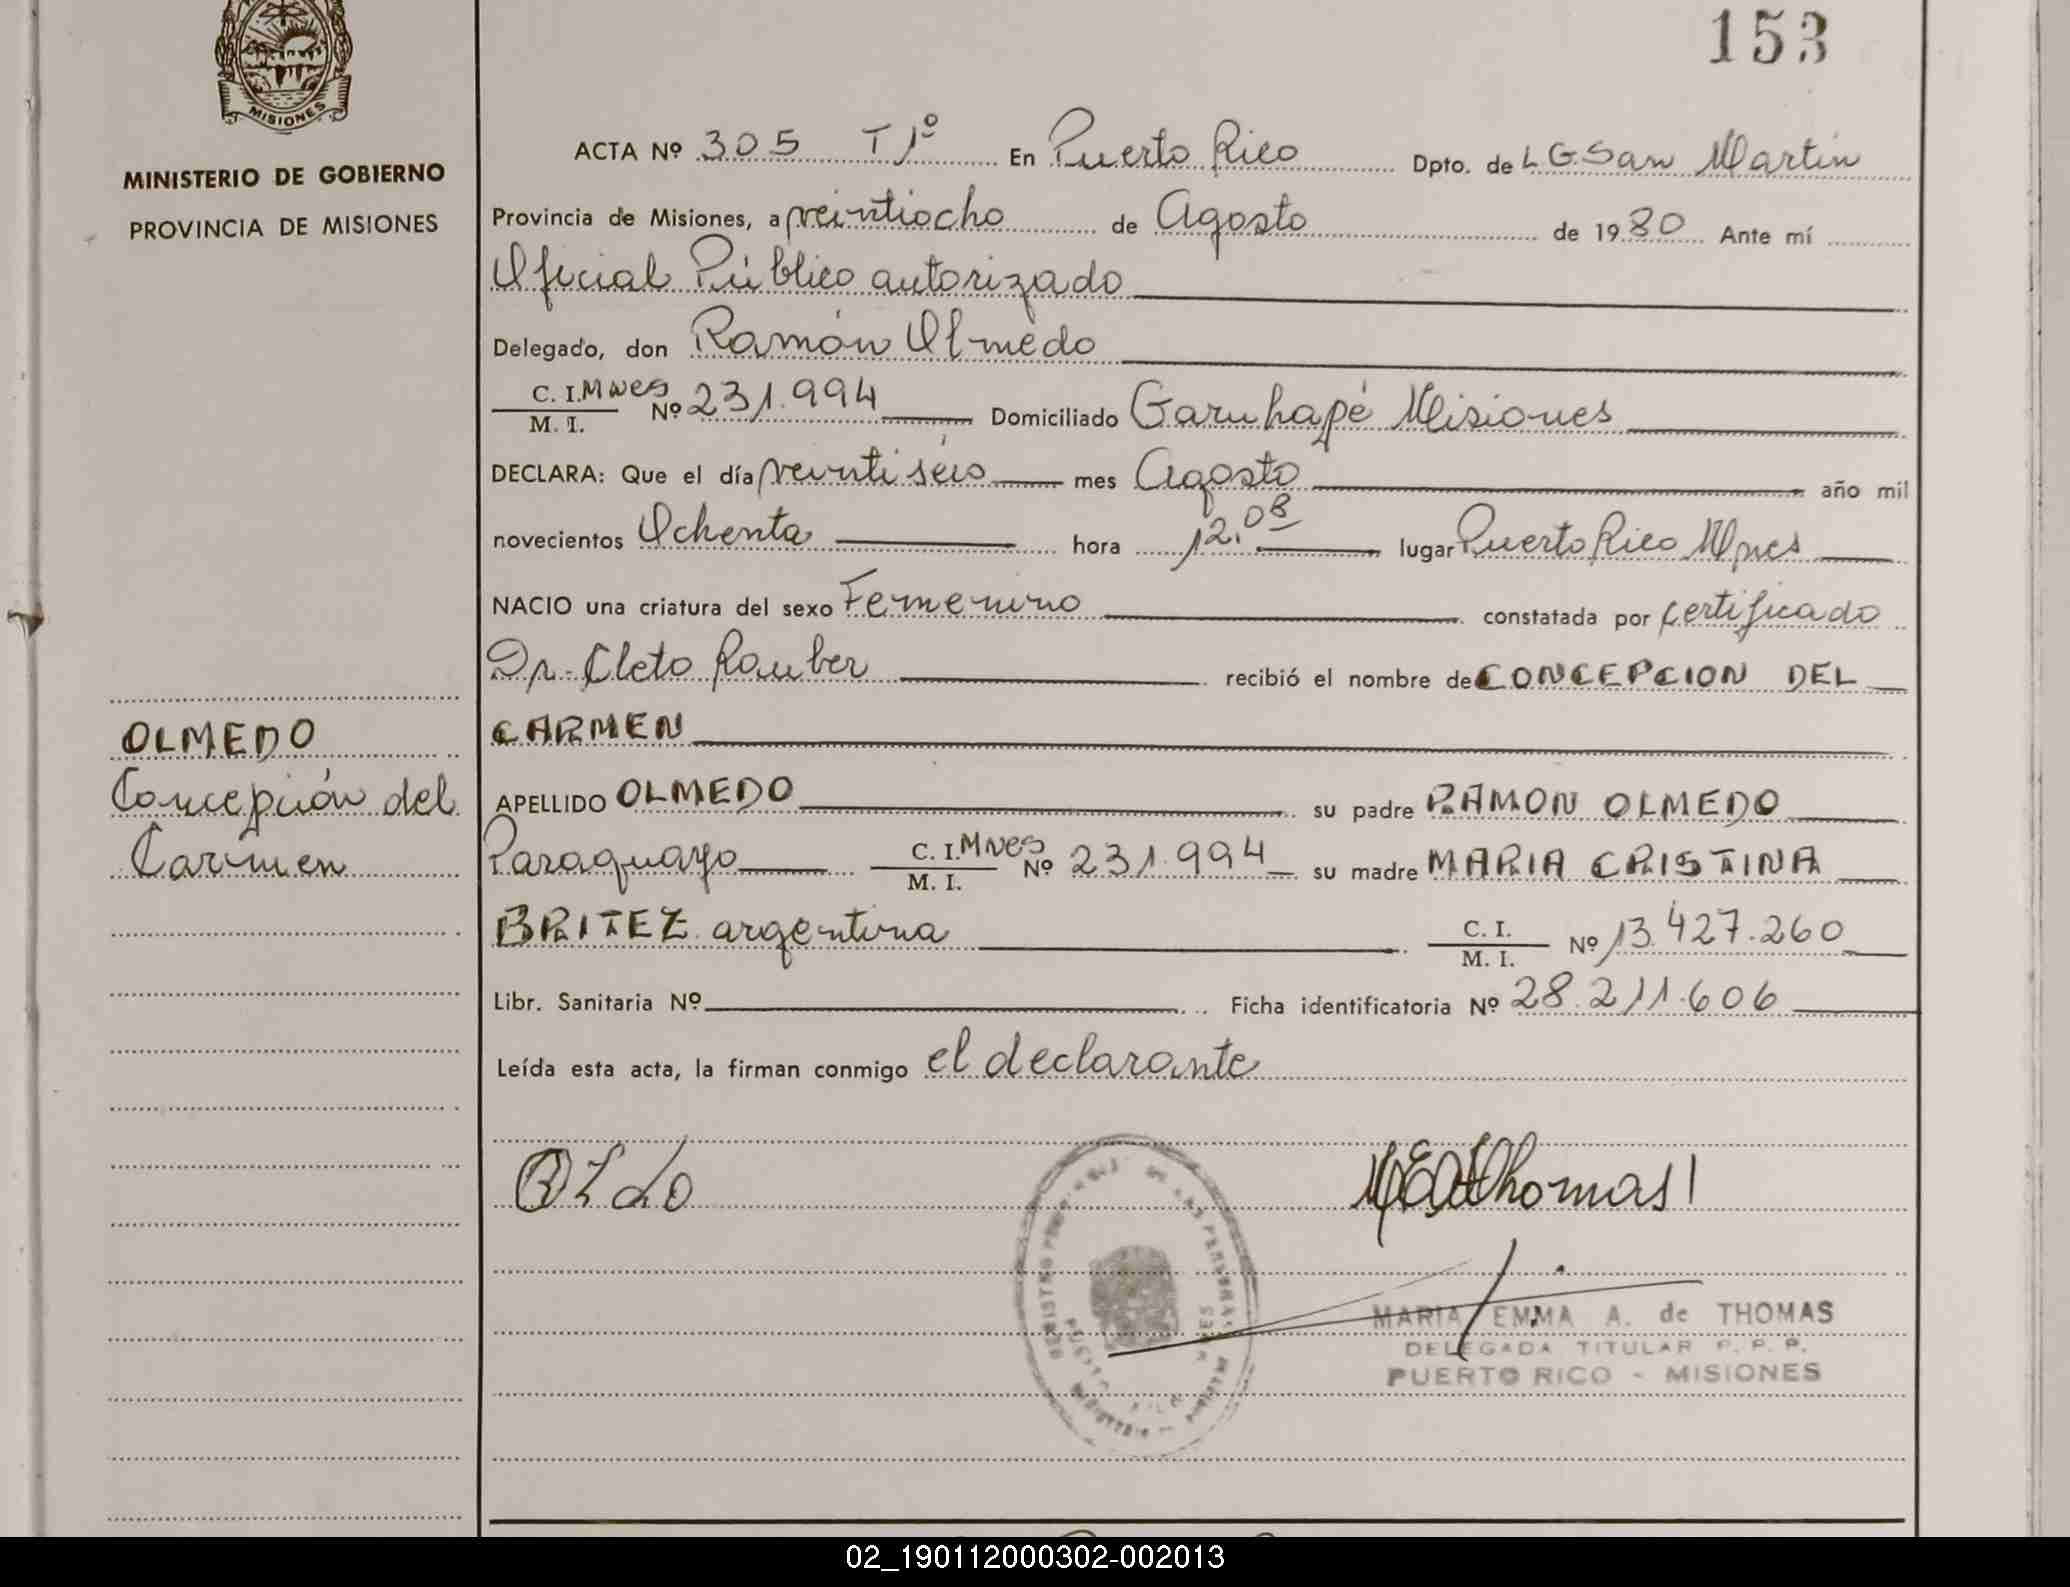 153
MISIONES
MINISTERIO DE GOBIERNO
PROVINCIA DE MISIONES
OLMEDO
Concepción del
Carmen
ACTA Nº 305 T 1º En Puerto Rico Dpto. de L G. San Martín
Provincia de Misiones, a veintiocho de Agosto de 1980 Ante mí
Oficial Público autorizado
Delegado, don Ramón Olmedo
C. I. Mnes
M. I. Nº 231.994 Domiciliado Garuhapé Misiones
DECLARA: Que el día veintiséis mes Agosto año mil
novecientos Ochenta hora 12.08 lugar Puerto Rico Mnes
NACIO una criatura del sexo Femenino constatada por certificado
Dr. Cleto Rauber recibió el nombre de CONCEPCION DEL
CARMEN
APELLIDO OLMEDO su padre RAMON OLMEDO
Paraguayo C. I. Mnes M. I. Nº 231.994 su madre MARIA CRISTINA
BRITEZ argentina C. I. M. I. Nº 13.427.260
Libr. Sanitaria Nº Ficha identificatoria Nº 28.211.606
Leída esta acta, la firman conmigo el declarante
MEAdeThomas
REGISTRO PROVINCIAL DE LAS PERSONAS
MARIA EMMA A. de THOMAS
DELEGADA TITULAR R. P. P.
PUERTO RICO - MISIONES
02_190112000302-002013